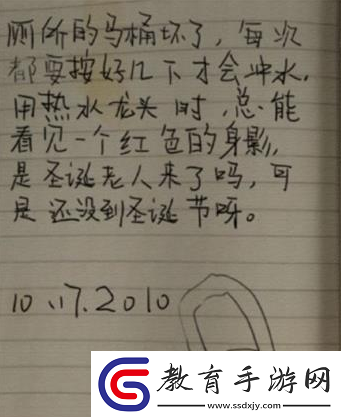 厕所的马桶坏了，每次
都要按好几下才会冲水.
用热水龙头时，总能
看见一个红色的身影，
是圣诞老人来了吗，可
是还没到圣诞节呀。
10.17.2010
教育手游网
www.ssdxjy.com